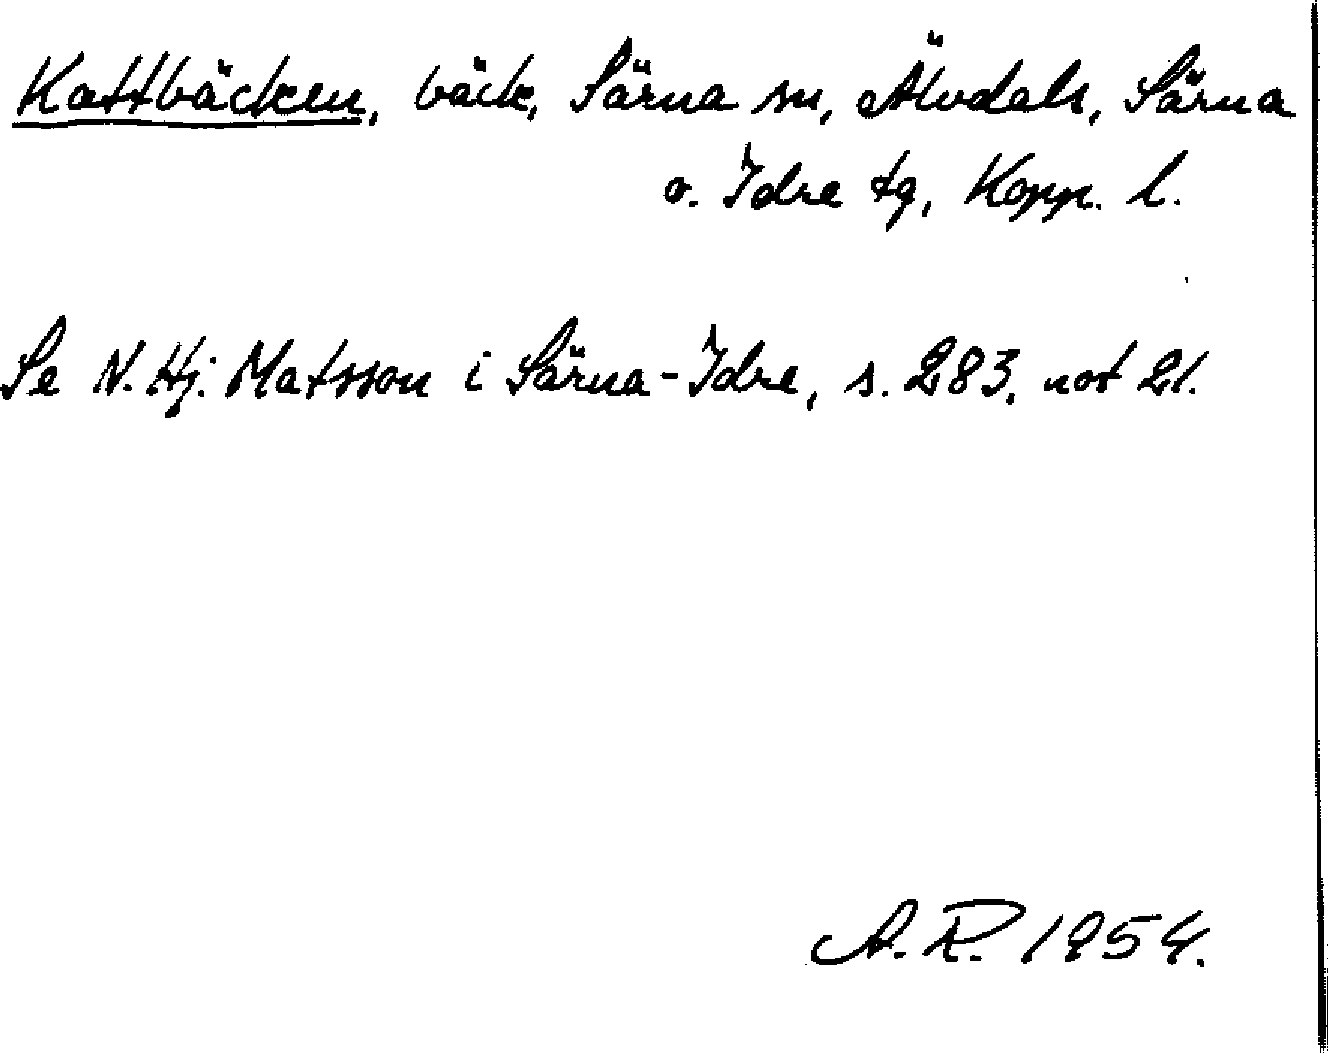 Kattbäcken, bäck, Särna sn, Älvdals, Särna
o. Idre tg, Kopp. l.
Se N. Hj. Matsson i Särna-Idre, s. 283, not 21.
A.R. 1954.